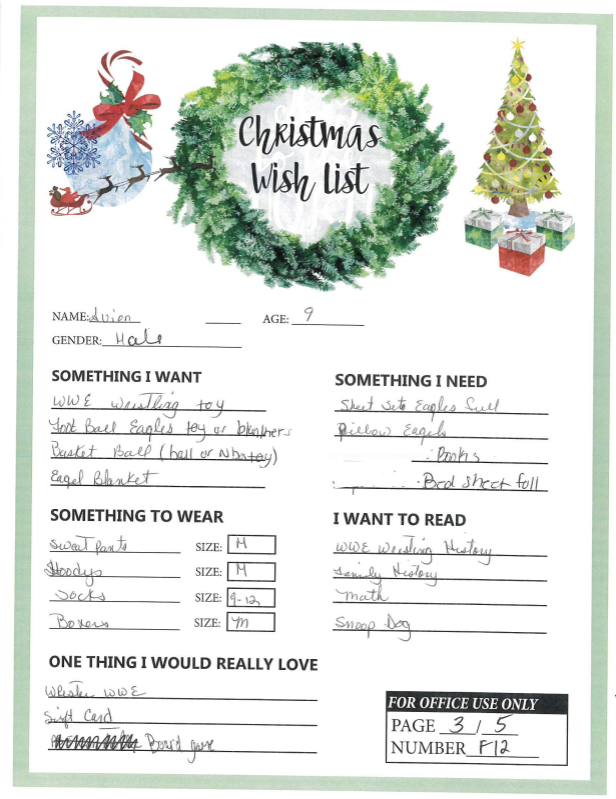 Christmas
Wish List
NAME: Avion AGE: 9
GENDER: Male
SOMETHING I WANT
WWE Wristling toy
Foot Ball Eagles toy or
Basket Ball (ball or Nba toy)
Eagel Blanket
SOMETHING I NEED
Sheet Sets Eagles full
Pillow Eagels
Books
Bed sheet full
SOMETHING TO WEAR
Sweat Pants SIZE: M
Hoodys SIZE: M
Socks SIZE: 9-12
Boxers SIZE: M
I WANT TO READ
WWE Wristling History
Family History
Math
Snoop Dog
ONE THING I WOULD REALLY LOVE
WWE
Gift Card
Board game
FOR OFFICE USE ONLY
PAGE 3 / 5
NUMBER F12